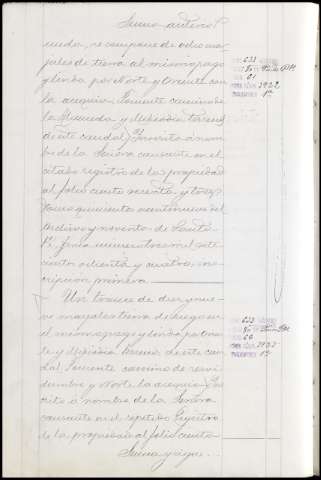 Suma anterior
neda, se compone de ocho ma-
jales de tierra al mismo pago
y linda por Norte y Oriente con
la acequia, Poniente camino de
la Alameda y Mediodia tierras
de este caudal. Inscrita á nom-
bre de la Señora causante en el
citado registro de la propiedad
al folio ciento ochenta y tres,
tomo quinientos noventa nueve del
archivo y noventa de Santa
Fé, finca numero tres mil sete-
cientos ochenta y cuatro, ins-
cripción primera.
Un trance de diez y nue-
ve marjales tierra de riego en
el mismo pago y linda por Nor-
te y Mediodia tierras de este cau-
dal, Poniente camino de servi-
dumbre y Norte la acequia. Ins-
crita á nombre de la Señora
causante en el repetido Registro
de la propiedad al folio ciento
Suma y sigue...
633
61
3922
1ª
633
66
3923
1ª